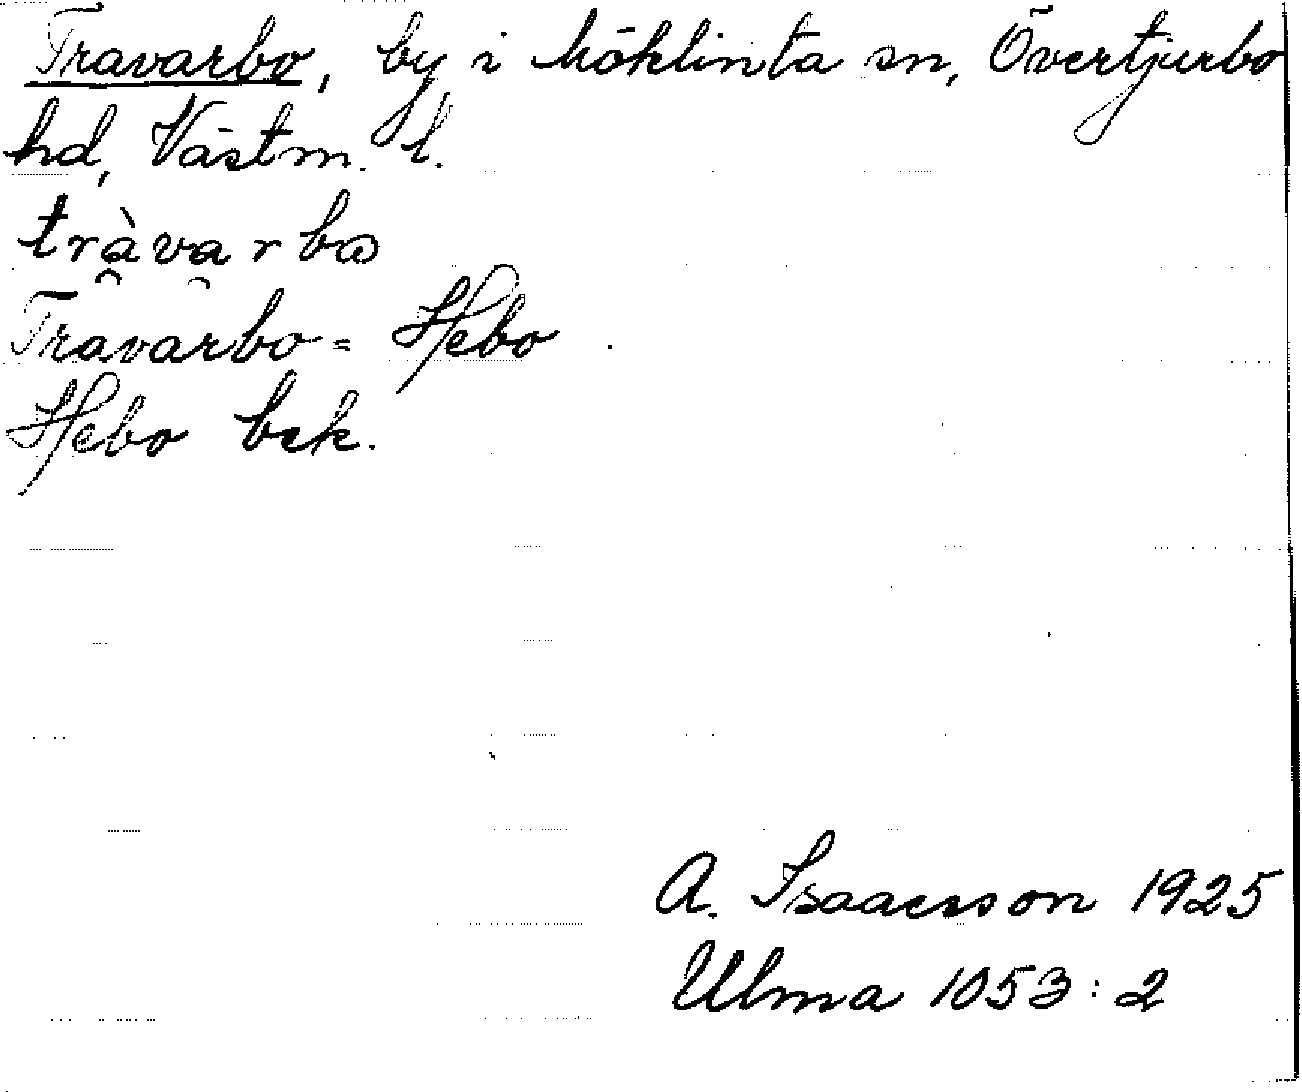 Travarbo, by i Möklinta sn, Övertjurbo
hd, Västm. l.
tràvarbɷ
Travarbo = Hebo
Hebo bek.
A. Isaacsson 1925
Ulma 1053:2